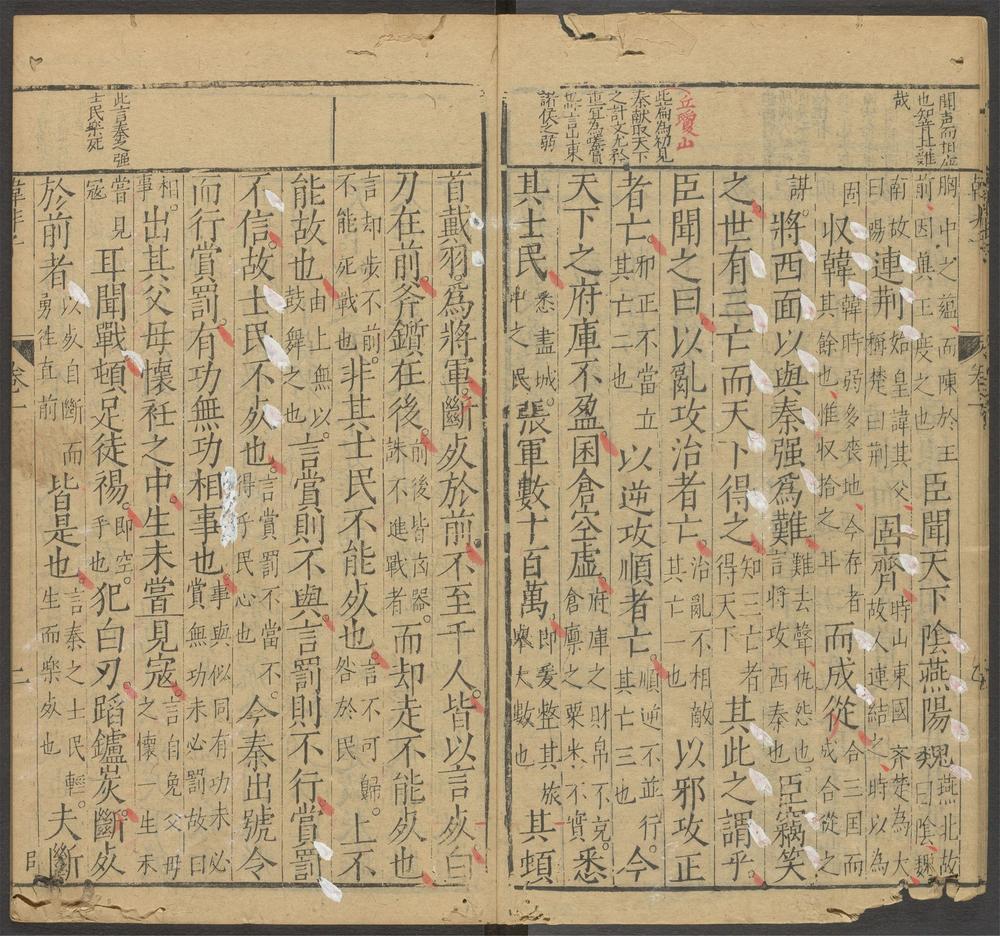 丘瓊山
此篇為初見
秦献取天下
之計文尤矜
諸侯之弱
胸中之蘊而陳於王前因與王度之也臣聞天下陰燕陽魏燕北故曰陰魏
南故曰陽連荆始皇諱其父稱楚曰荆固齊時山東國齊楚為大故人連結之時以為
固収韓韓時弱多喪地今存者其餘也惟収拾之耳而成從合三国而成合從之
謀。將西面以與秦强為難難去聲仇怨也。言將攻西秦也臣竊笑
之。之世有三亡而天下得之知三亡者得天下其此之謂乎。
臣聞之曰以亂攻治者亡。治亂不相敵其亡也以邪攻正
者亡。邪正不當立其亡二也以逆攻順者亡順逆不並行。其亡三也今
天下之府庫不盈囷倉空虛。府庫之財帛不充。倉廪之粟米不實悉
其士民悉盡城。中之民張軍數十百萬即爰整其旅衆大數也其頓
此言秦之强
士民樂死
首戴羽。為將軍。斷死於前。不至千人。皆以言死白
刃在前。斧鑕在後。前後皆凶器。誅不進戰者。而却走不能死也
言却步不前。不能死戰也非其士民不能死也言不可歸。咎於民上不
能故也由上無以。鼓舞之也言賞則不與。言罰則不行賞罰
不信。故士民不死也。言賞罰不當不。得乎民心也今秦出號令
而行賞罰。有功無功相事也事與似同有功未必賞無功未必罰故曰
相。事出其父母懷衽之中。生未嘗見寇。言自免父母之懷一生未
嘗見寇耳聞戰頓足徒裼。即空。乎也犯白刃。蹈鑪炭。斷死
於前者以死自斷而勇往直前皆是也。言秦之士民輕。生而樂死也夫斷